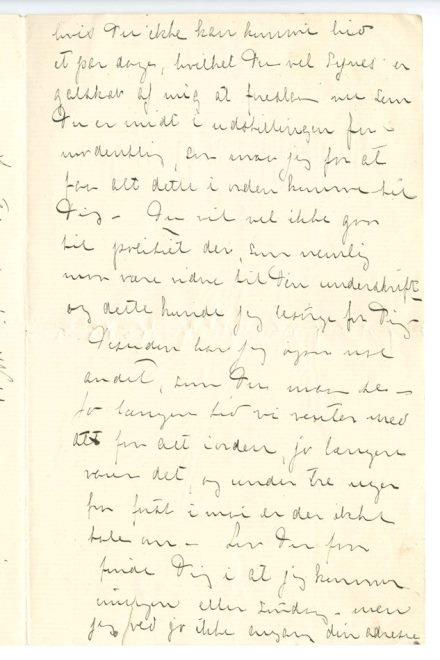 hvis Du ikke kan komme hid
et par dage, hvilket Du vel synes er
galskab af mig at foreslaa nu som
Du er midt i udstillingen for-
modentlig, saa maa jeg for at
faa alt dette i orden komme til
Dig – Du vil vel ikke gaa
til politiet der, som nemlig
maa være vidne til Din underskrift –
og dette kunde jeg besørge for Dig –
Desuden har jeg ogsaa nok
andet, som Du maa se –
Jo længere tid vi venter med
at faa alt i orden, jo længere
varer det, og under tre uger
fra først i mai er der ikke
tale om – Saa Du faar
finde Dig i at jeg kommer
imorgen eller søndag – men
jeg ved jo ikke engang din adresse